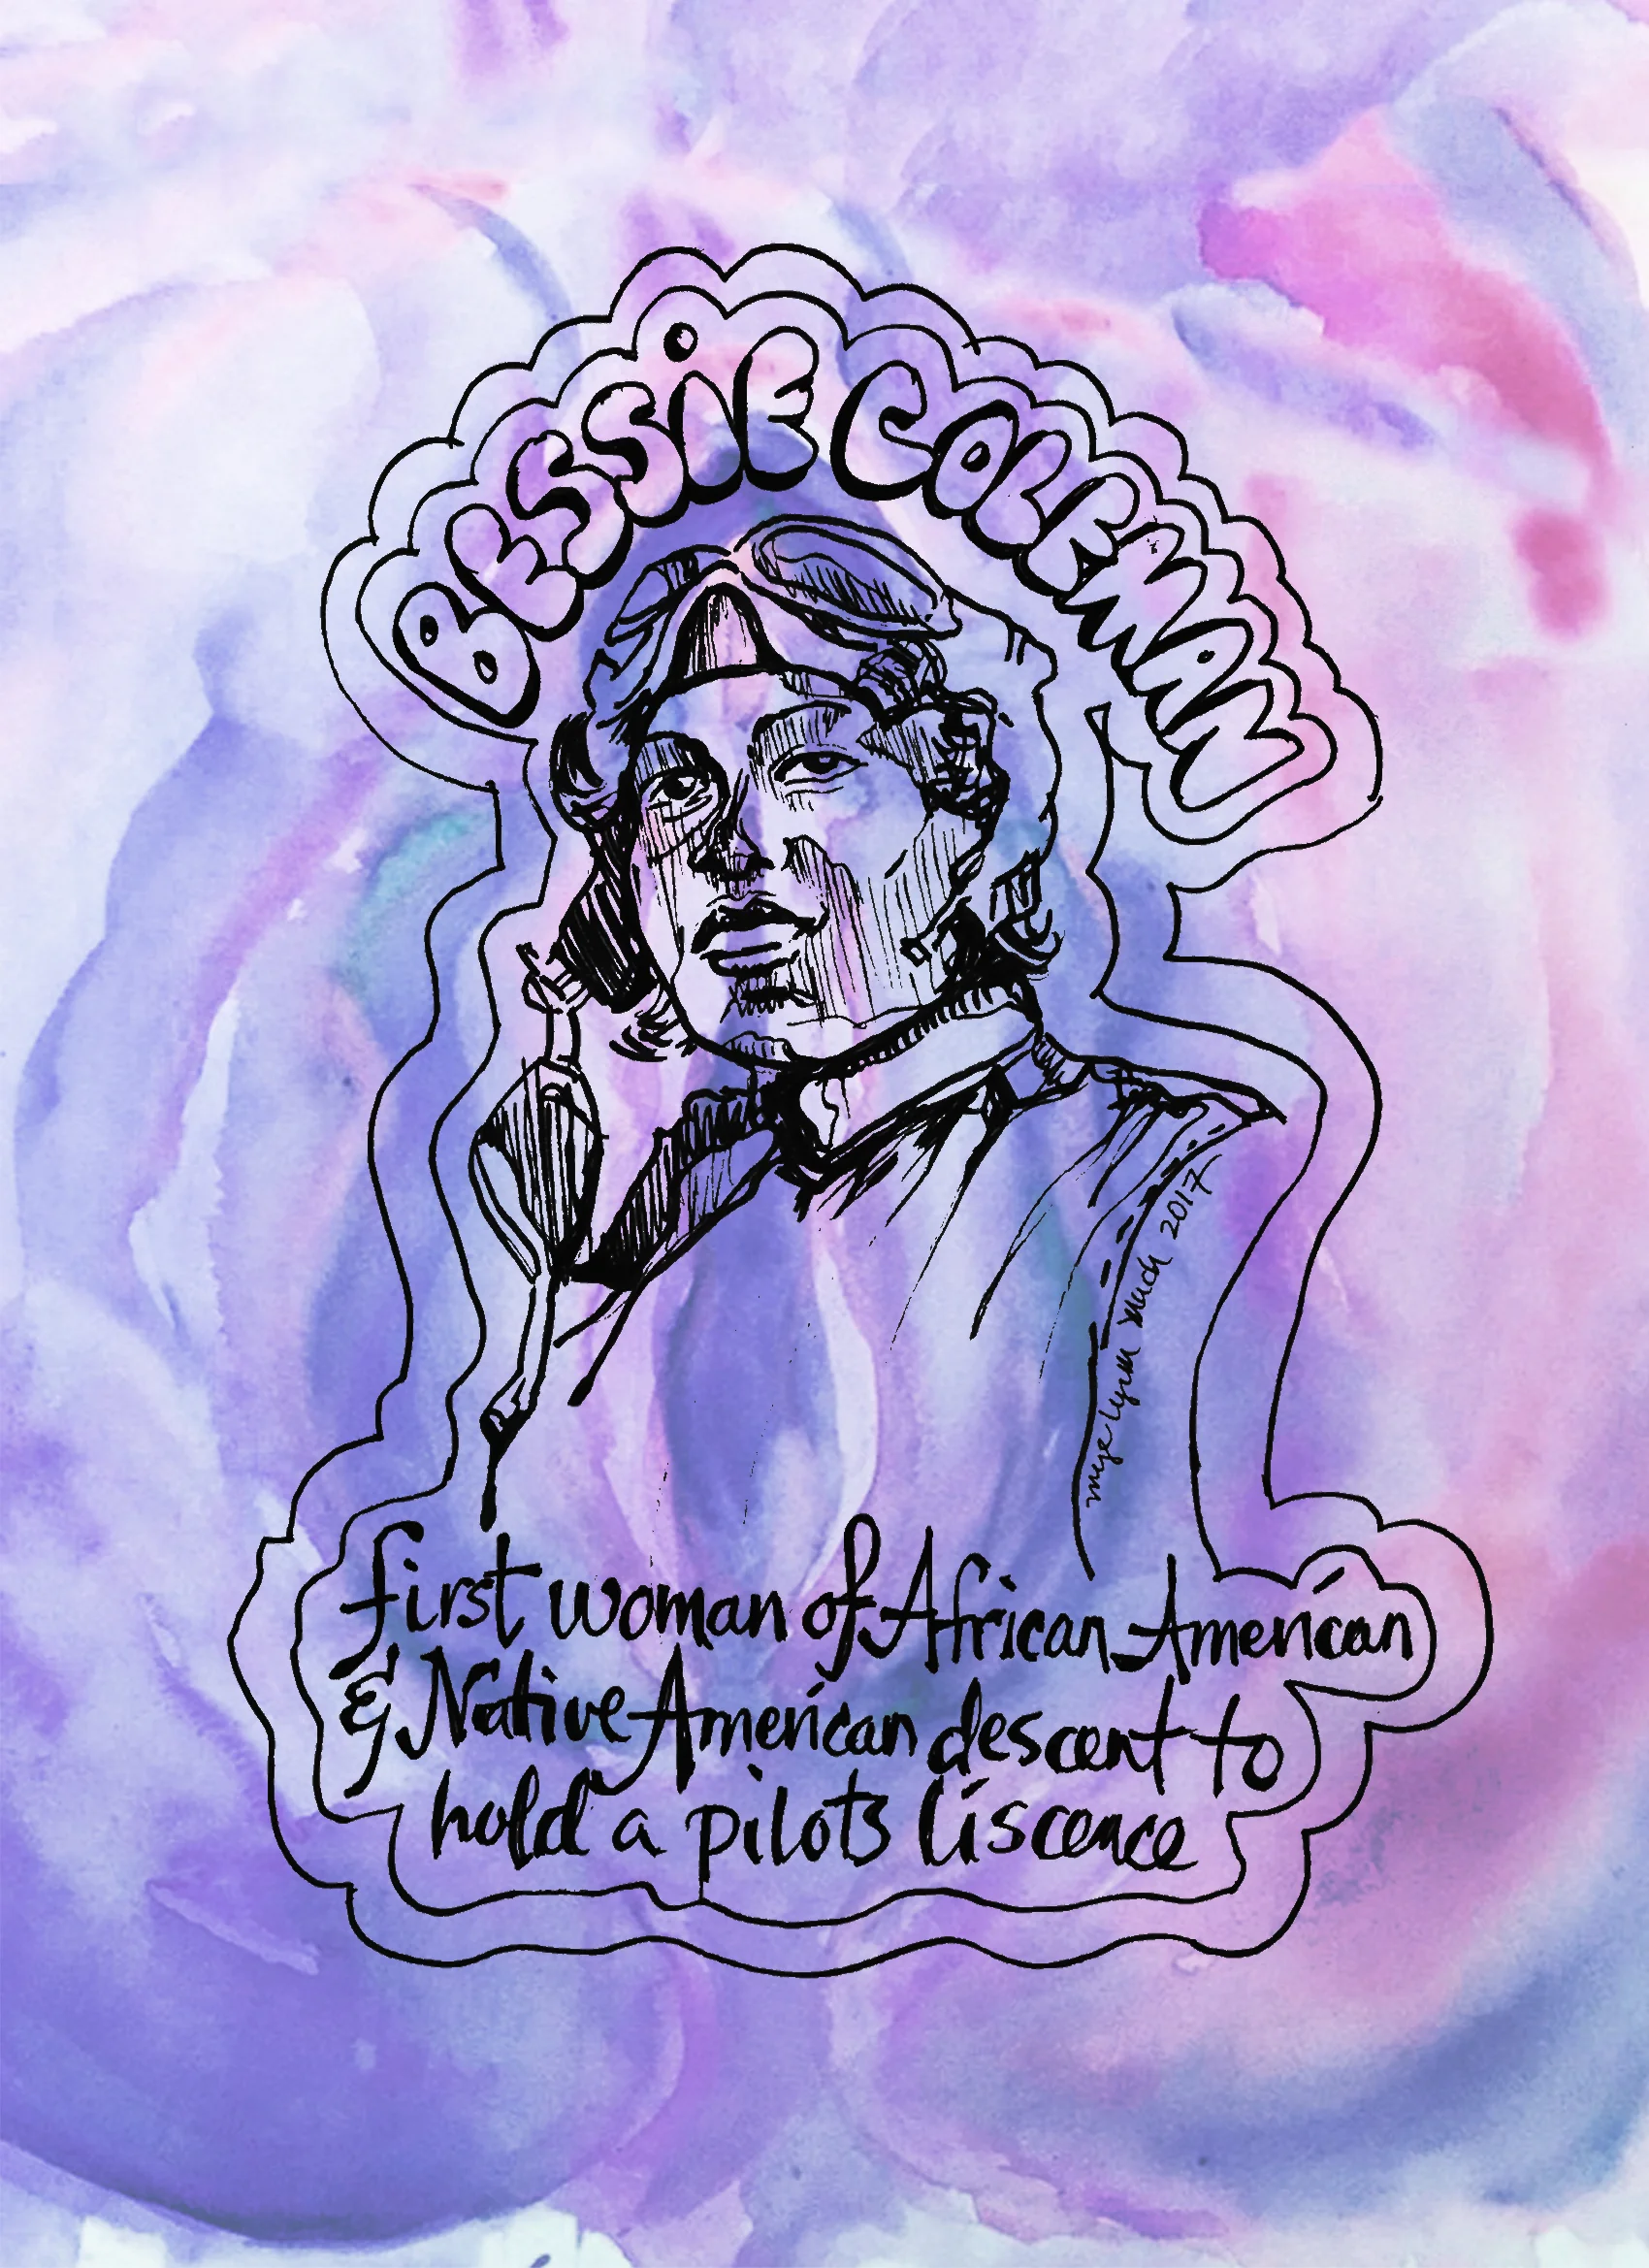 BESSiE COLEMAN
2017
first woman of African American
& Native American descent to
hold a pilots liscence